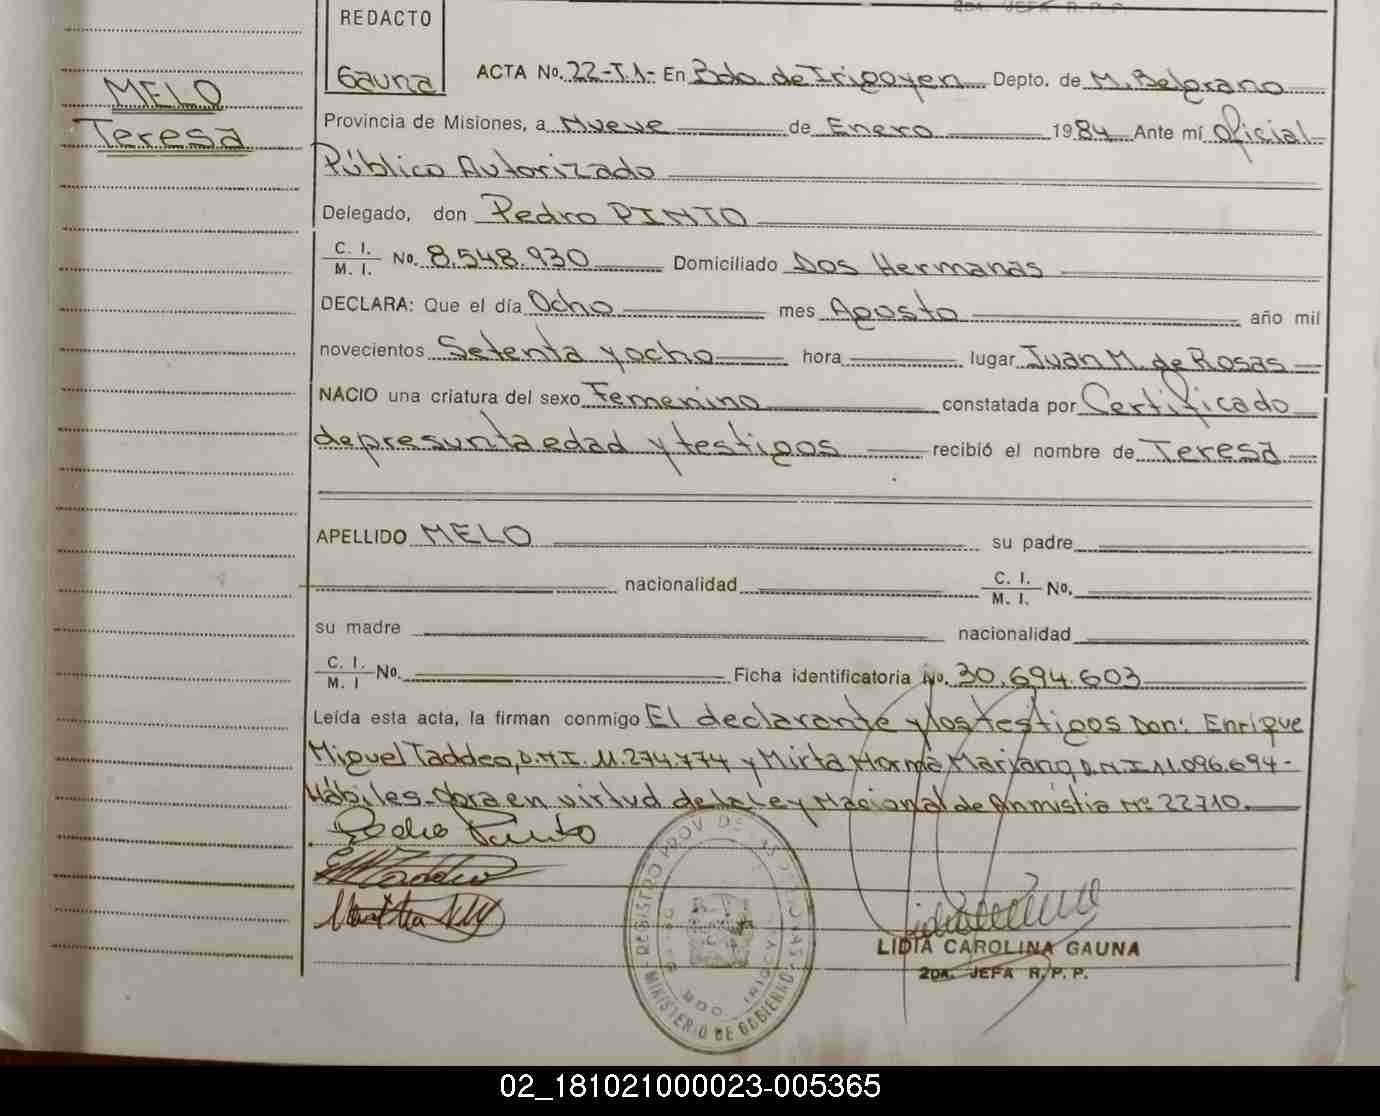 2DA. JEFA R.P.P.
REDACTO
Gauna
MELO
Teresa
ACTA No. 22-T.1- En Bdo. de Irigoyen Depto. de M. Belgrano
Provincia de Misiones, a Nueve de Enero 1984 Ante mí Oficial
Público Autorizado
Delegado, don Pedro PINTO
C. I.
M. I. No. 8.548.930 Domiciliado Dos Hermanas
DECLARA: Que el día Ocho mes Agosto año mil
novecientos Setenta y ocho hora lugar Juan M. de Rosas
NACIO una criatura del sexo Femenino constatada por Certificado
de presunta edad y testigos recibió el nombre de Teresa
APELLIDO MELO su padre
nacionalidad C. I.
M. I. No.
su madre nacionalidad
C. I.
M. I No. Ficha identificatoria No. 30.694.603
Leída esta acta, la firman conmigo El declarante y los testigos Don: Enrique
Miguel Taddeo, D.N.I. 11.274.774 y Mirta Norma Mariano, D.N.I 11.096.694-
Hábiles. Obra en virtud de la Ley Nacional de Anmistia Nº 22710.
Pedro Pinto
REGISTRO PROV. DE LAS PERSONAS
MINISTERIO DE GOBIERNO
BDO. IRIGOYEN
LIDIA CAROLINA GAUNA
2DA. JEFA R.P.P.
02_181021000023-005365